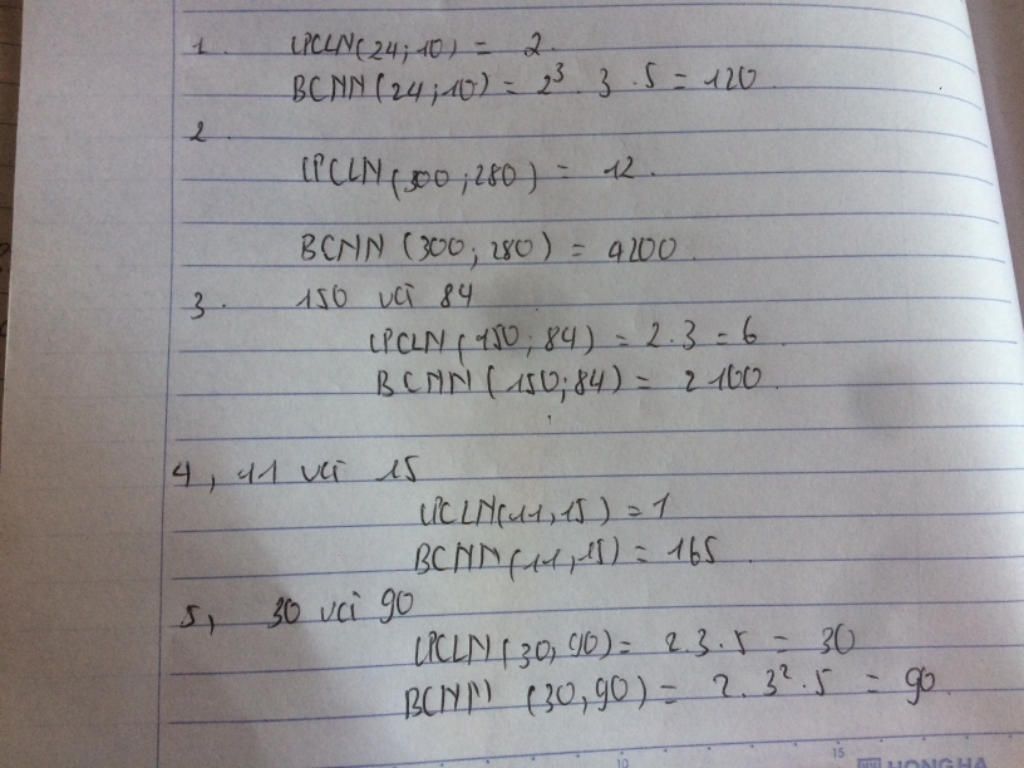 1. ƯCLN(24;10) = 2.
BCNN(24;10) = 2³.3.5 = 120
2.
ƯCLN(300;280) = 12.
BCNN (300;280) = 4200.
3. 150 và 84
ƯCLN(150;84) = 2.3 = 6
BCNN(150;84) = 2100.
4, 11 và 15
ƯCLN(11,15) = 1
BCNN(11,15) = 165
5, 30 và 90
ƯCLN(30,90) = 2.3.5 = 30
BCNN (30,90) = 2.3².5 = 90.
10 15 HONGHA